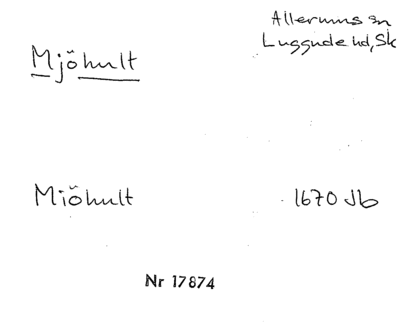 Allerums sn
Mjöhult
Luggude hd, Sk
Miöhult
1670 Jb
Nr 17874